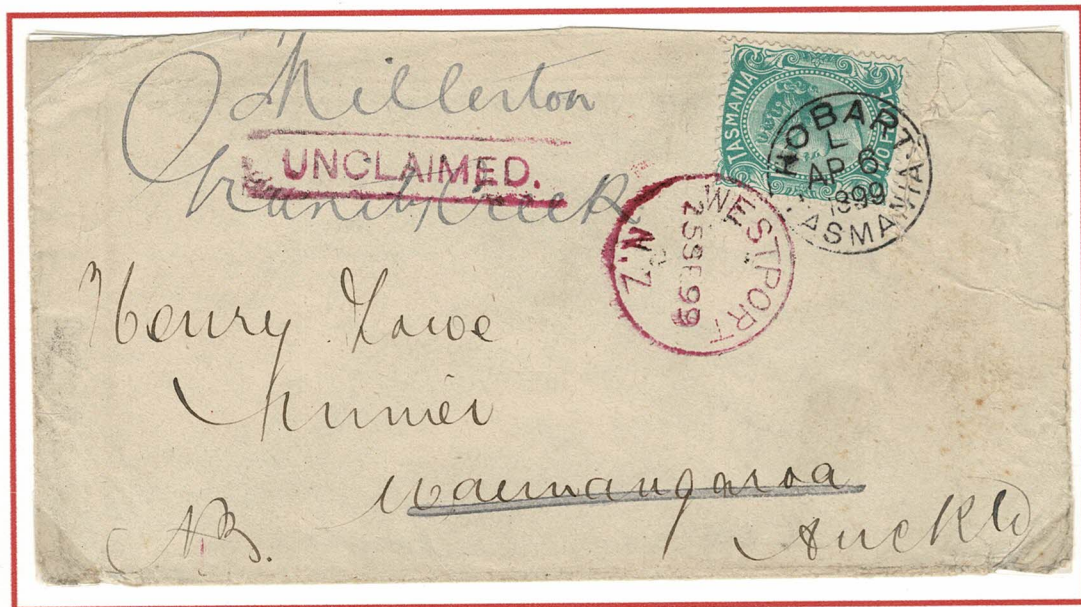 Millerton
UNCLAIMED.
Granity Creek
TASMANIA
HOBART
L
AP 6
1899
TASMANIA
WESTPORT
25 SE 99
N.Z
Henry Lowe
Miner
Waimangaroa
Auckld